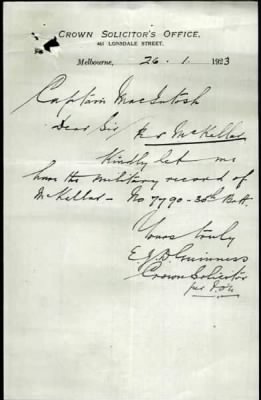 CROWN SOLICITOR'S OFFICE,
461 LONSDALE STREET.
Melbourne, 26 . 1 . 1923
Captain MacIntosh
Dear Sir R v McKellar
Kindly let me
have the military record of
McKellar - No 7790 - 30th Batt.
Yours truly
Guinness
Crown Solicitor
per